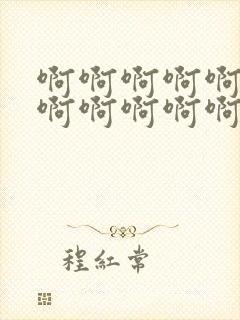 啊啊啊啊啊
啊啊啊啊啊
程紅常